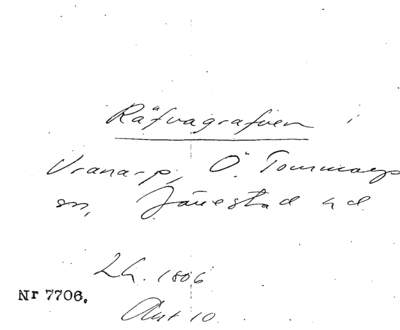 Räfvagrafven i
Vranarp, Ö. Tommarps
sn, Järrestad hd.
Lh. 1806
Nr 7706.
Ant 10